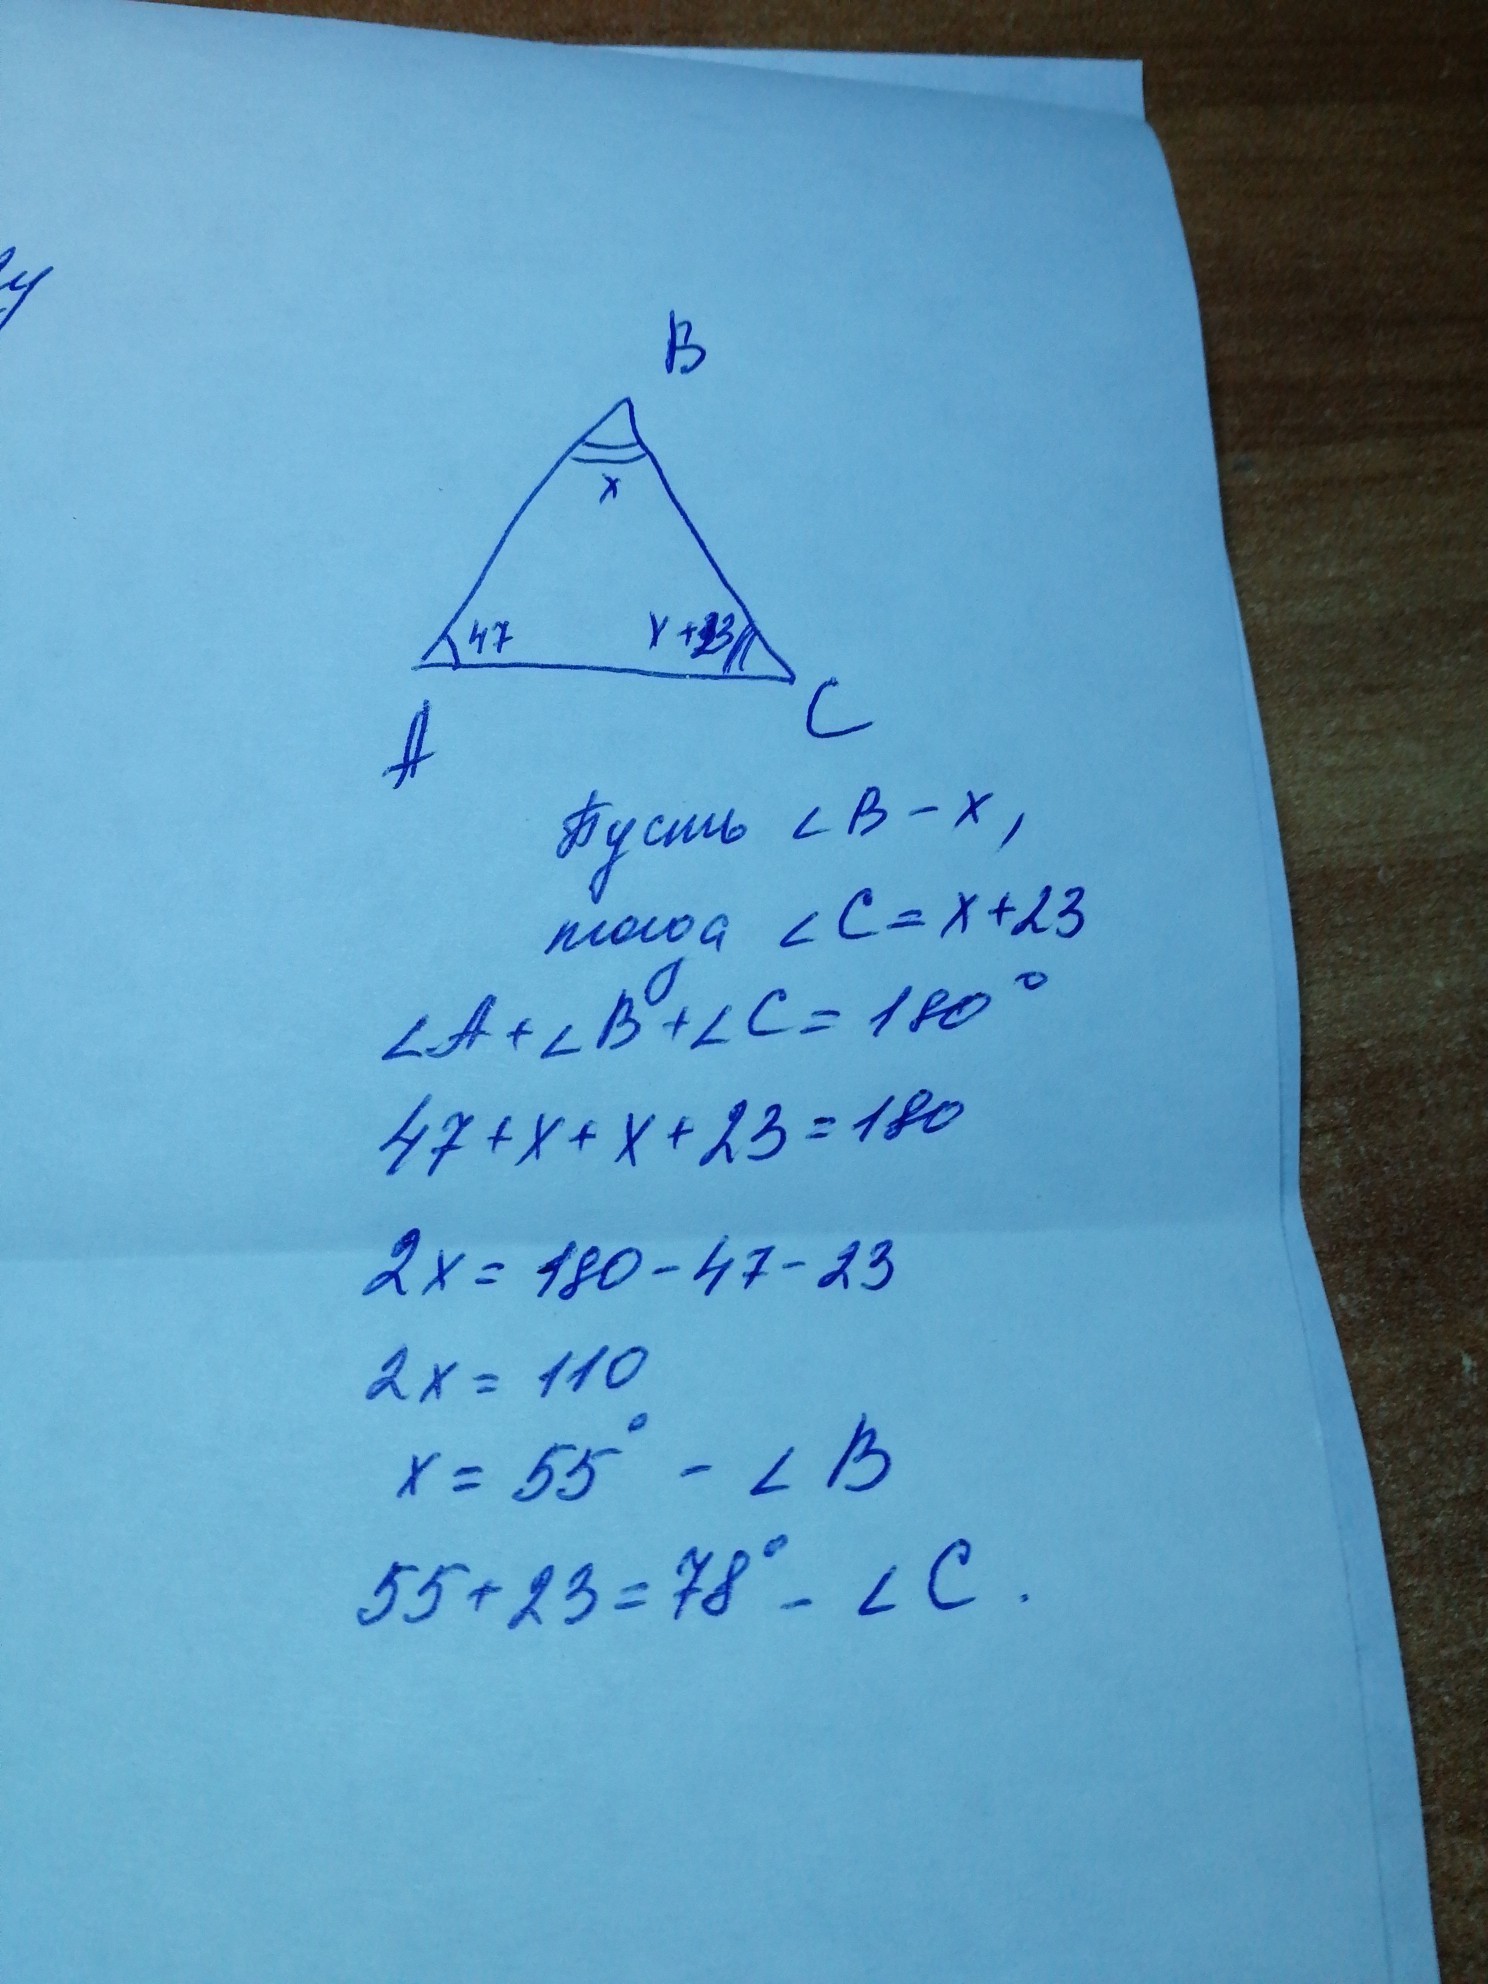 B
x
47 x+23
A C
Пусть ∠B - x,
тогда ∠C = x+23
∠A+∠B+∠C = 180°
47+x+x+23=180
2x = 180-47-23
2x = 110
x = 55° - ∠B
55+23=78° - ∠C.